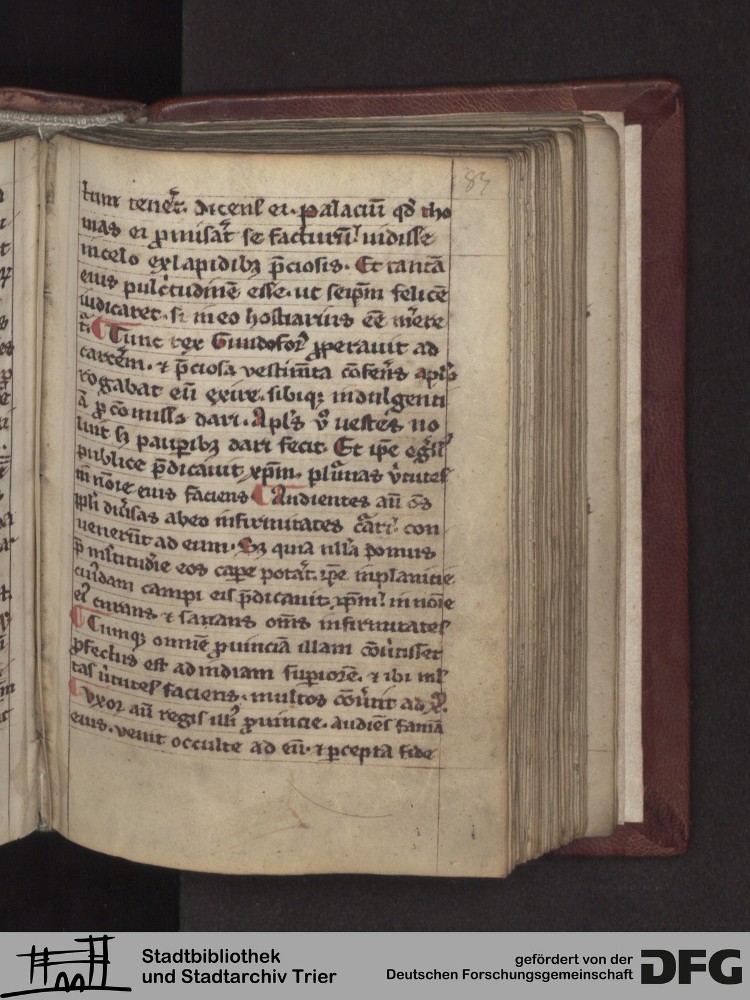 83
tum teneret. dicens ei. palaciū qd tho
mas ei ꝓmisat̄ se facturū uidisse
in celo ex lapidibꝫ p̄ciosis. Et tantā
eius pulc̄tudinē esse. ut seip̄m felicē
iudicaret. si in eo hostiarius eē m̄ere
t̄. Tunc rex Gundofor̄ ꝓperauit ad
carcēm. ⁊ p̄ciosa vestim̄ta cōferēs apl̄o
rogabat eū exire. sibiqꝫ indulgenti
ā ꝓ cōmissis dari. Apl̄s v̊ uestes no
luit sꝫ pauꝑibꝫ dari fecit. Et ip̄e
publice p̄dicauit xp̄m. plurimas v̄tutes
in nōie eius faciens Audientes aū
ppl̄i diu̾sas ab eo infirmitates cōn
uenerūt ad eum. Sꝫ quia nulla domus
p̄ m̄ltitudīe eos cape potat̄. ip̄e in planicie
cuiusdam campi eis p̄dicauit xp̄m. in nōie
eiꝰ curans ⁊ sanans oms̄ infirmitates
Cumqꝫ omnē ꝓuinciā illam cōu̾tisset
ꝓfectus est ad indiam suꝑiorē. ⁊ ibi ml̄
tas u̾tutes faciens. multos cōu̾tit ad xp̄.
Vxor aū regis illiꝰ ꝓuincie. audiēs famā
eius. venit occulte ad eū. ⁊ ꝑcepta fide
Stadtbibliothek
und Stadtarchiv Trier
gefördert von der
Deutschen Forschungsgemeinschaft
DFG